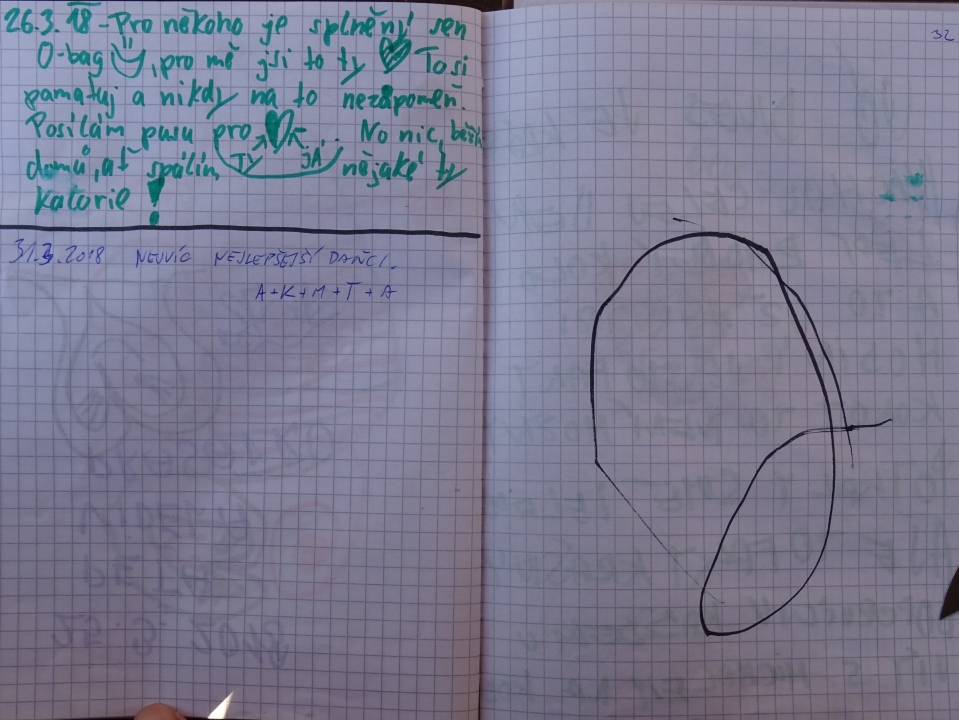 26.3.18 - Pro někoho je splněný sen
O-bag, pro mě jsi to ty To si
pamatuj a nikdy na to nezapomeň.
Posílám pusu pro ... No nic, běžím
TY JÁ
domů, ať spálím nějaké ty
kalorie!
31.3.2018 NEJVÍC NEJLEPŠEJŠÍ DANČI.
A+K+M+T+A
32